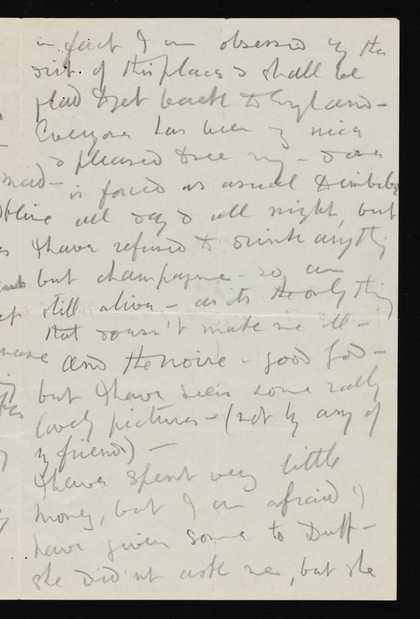 in fact I am obsessed by the
dirt of this place & shall be
glad to get back to England –
Everyone has been so nice
& pleased to see me – & one
is forced as usual to imbibe
all day & all night, but
I have refused to drink anything
but champagne – so am
still alive – as its the only thing
that doesn't make me ill –
And the noise – good God –
but I have seen some really
lovely pictures – (not by any of
my friends) –
I have spent very little
money, but I am afraid I
have given some to Duff –
she didn't ask me, but she